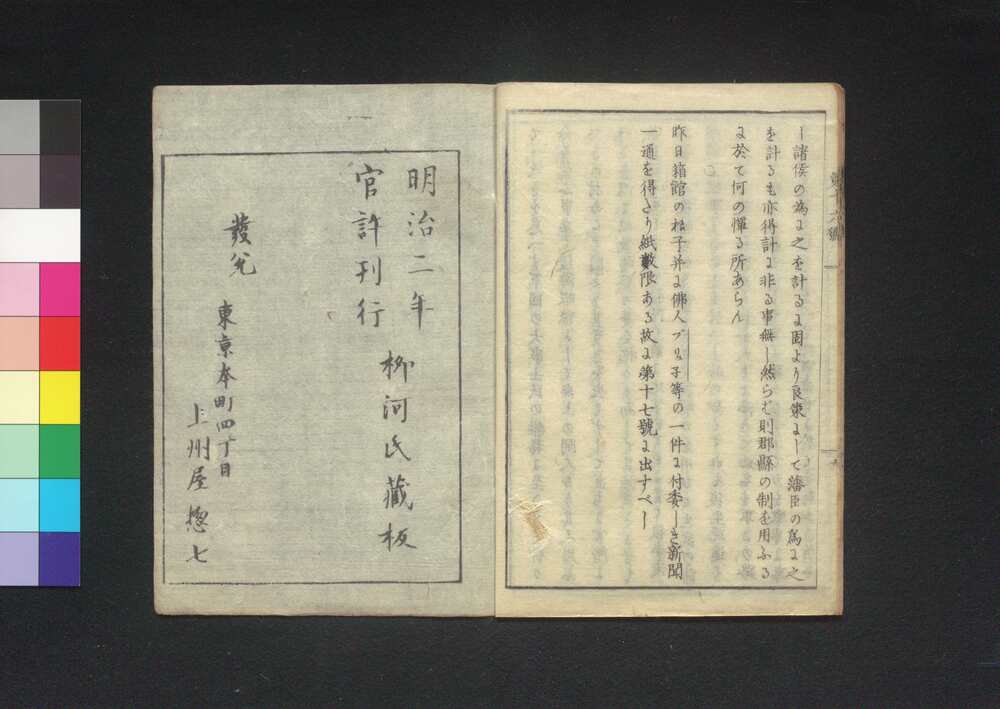 し諸侯の為に之を計るに固より良策にして藩臣の為に之
を計るも亦得計に非る事無し然らば則郡縣の制を用ふる
に於て何の憚る所あらん
昨日箱館の様子并に佛人ブリュ子等の一件に付委しき新聞
一通を得たり紙數限ある故に第十七號に出すべし
第十六號
明治二年
官許刊行
柳河氏藏板
發兌
東京本町四丁目
上州屋惣七